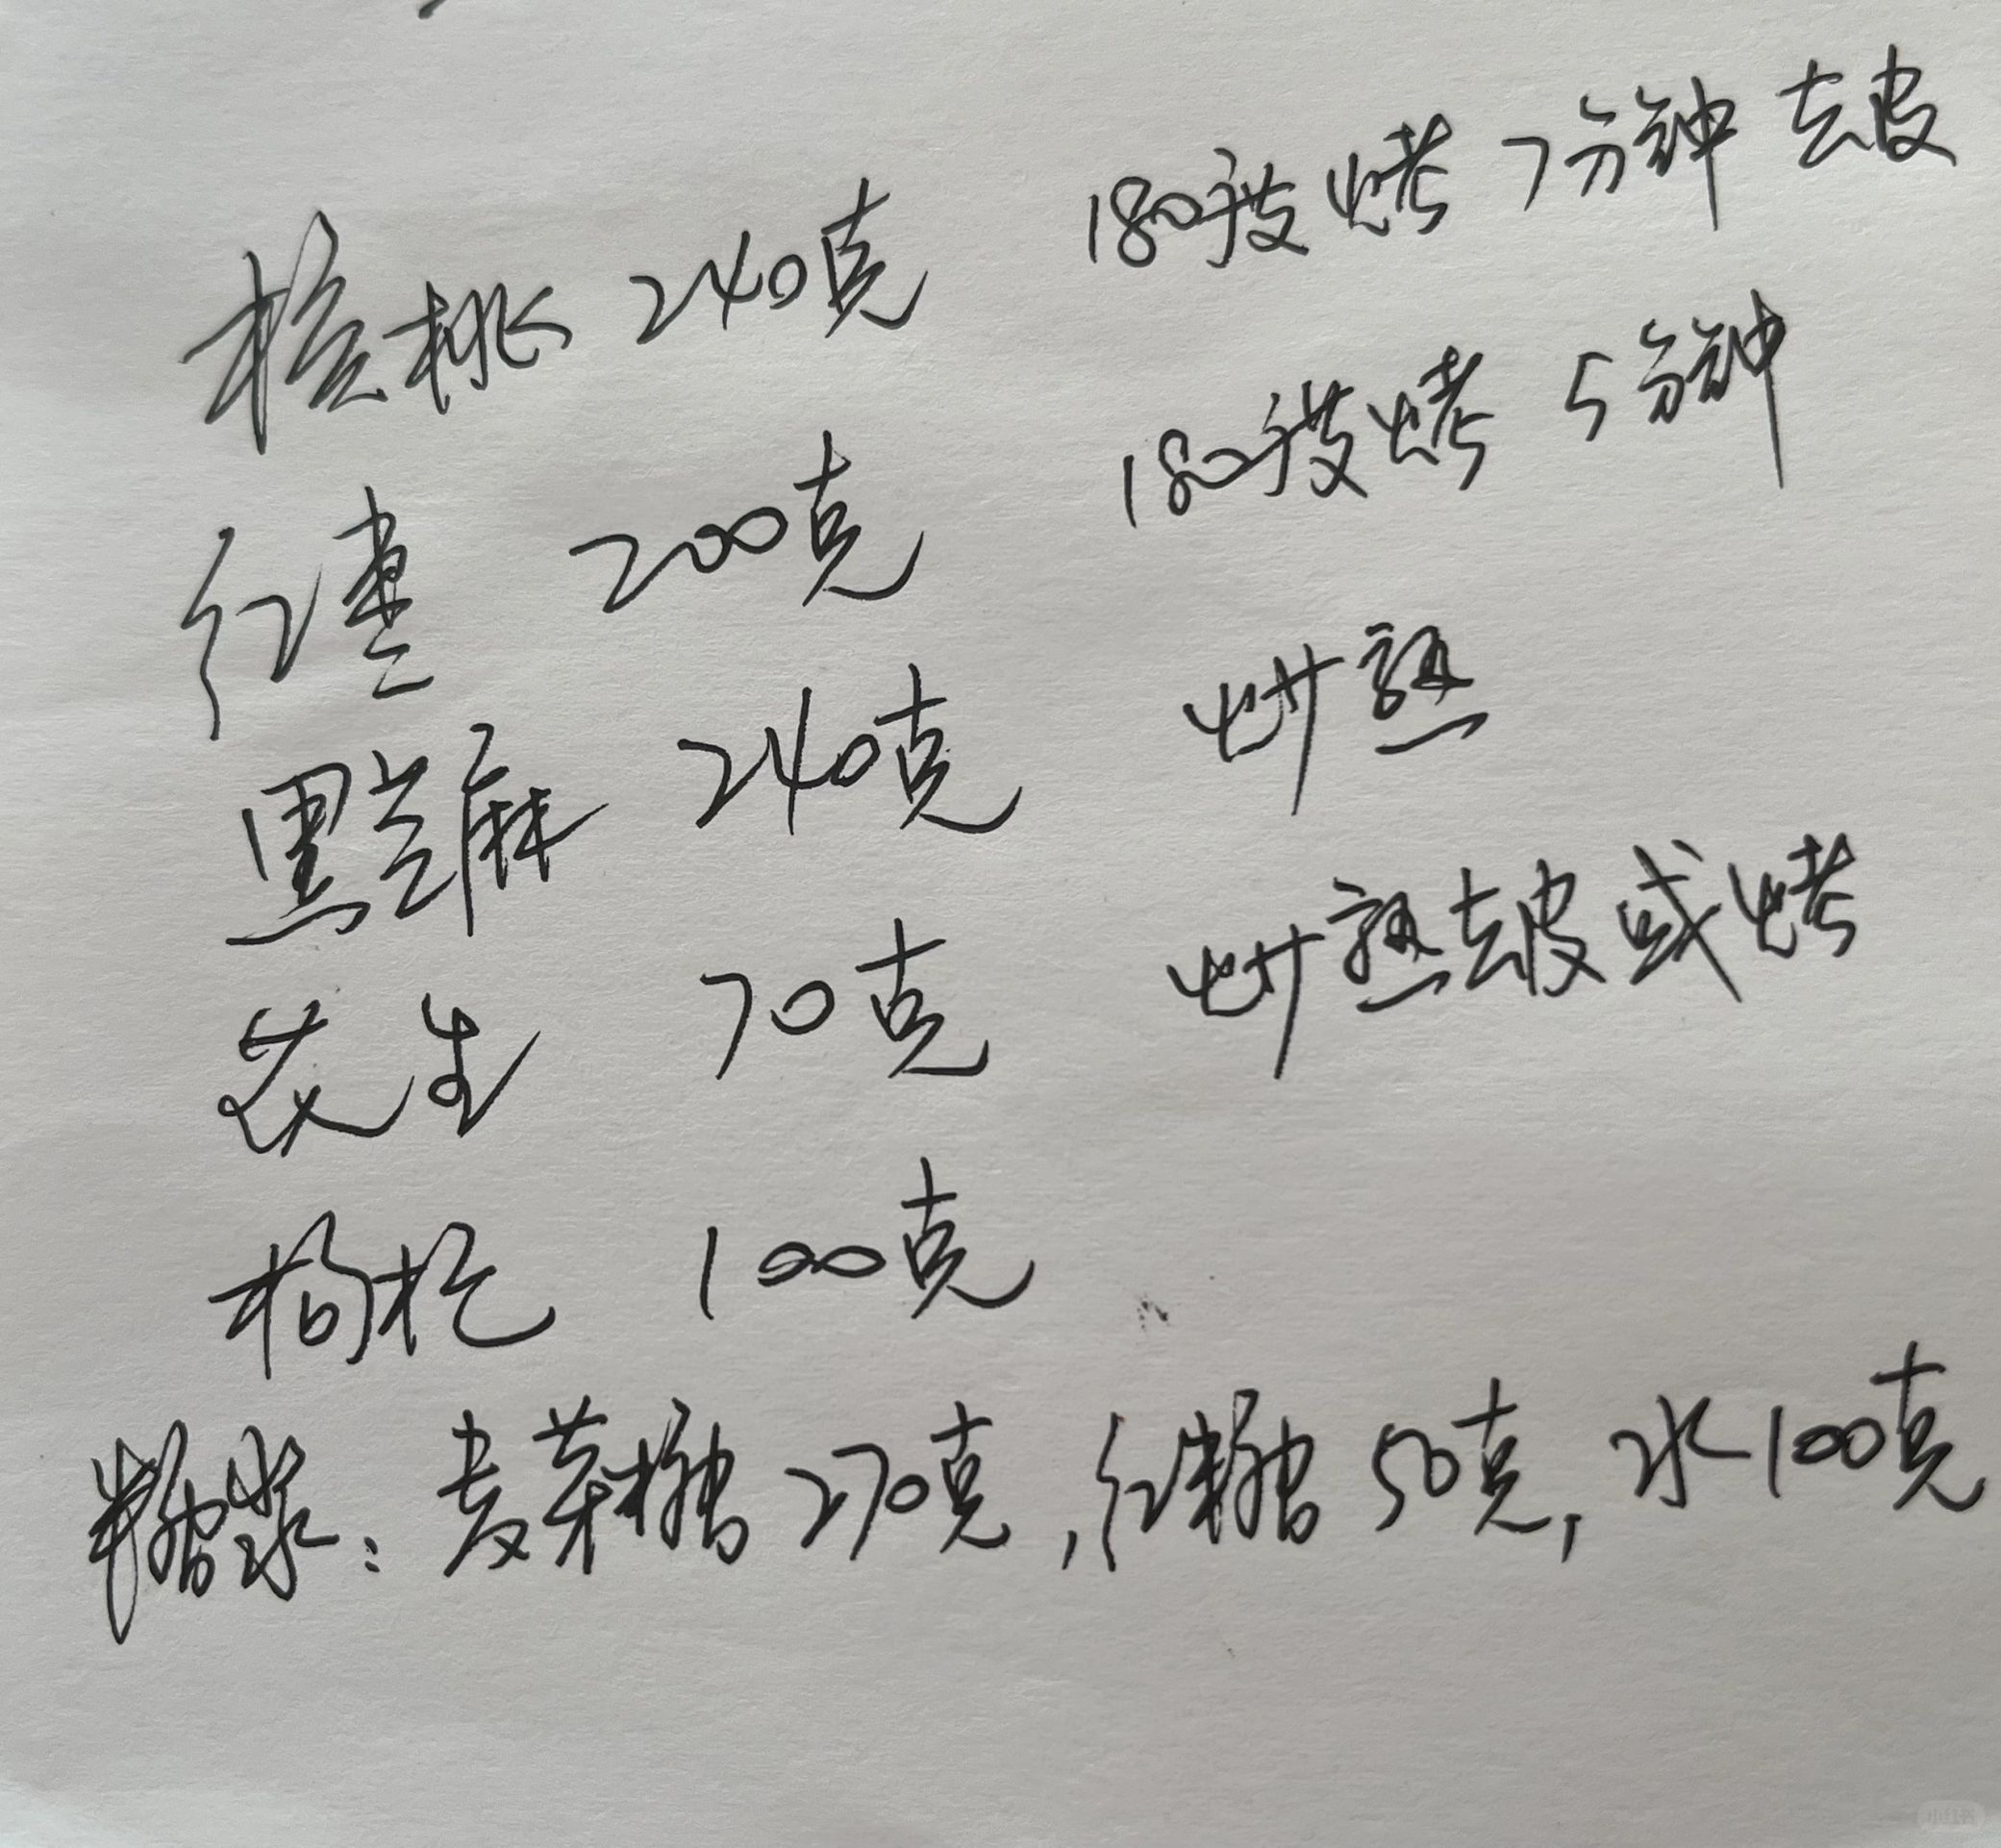 核桃 240克 180度烤 7分钟 去皮
红枣 200克 180度烤 5分钟
黑芝麻 240克 炒熟
花生 70克 炒熟去皮或烤
枸杞 100克
糖浆：麦芽糖 270克，红糖 50克，水 100克
小红书